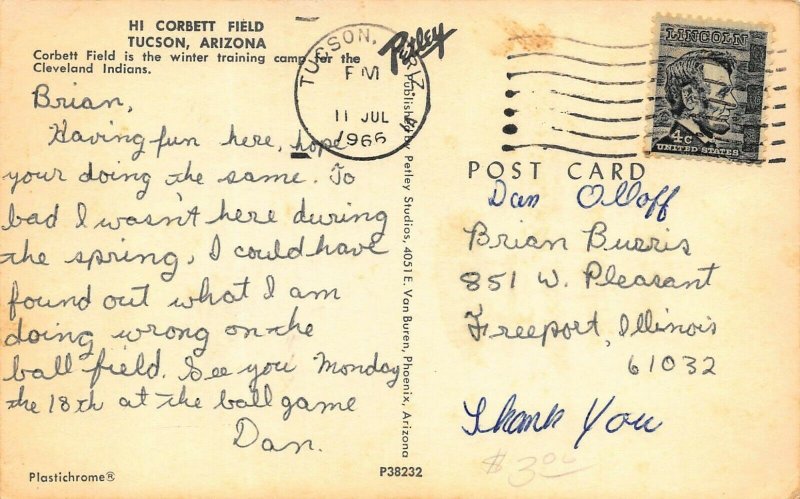 HI CORBETT FIELD
TUCSON, ARIZONA
Corbett Field is the winter training camp for the
Cleveland Indians.
Brian,
Having fun here, hope
your doing the same. To
bad I wasn't here during
the spring, I could have
found out what I am
doing wrong on the
ball field. See you Monday
the 18th at the ball game
Dan.
Plastichrome®
TUCSON, ARIZ.
PM
11 JUL
1966
Petley
Published by Petley Studios, 4051 E. Van Buren, Phoenix, Arizona
P38232
LINCOLN
4c
UNITED STATES
POST CARD
Dan Olloff
Brian Burris
851 W. Pleasant
Freeport, Illinois
61032
Thank You
$3.00